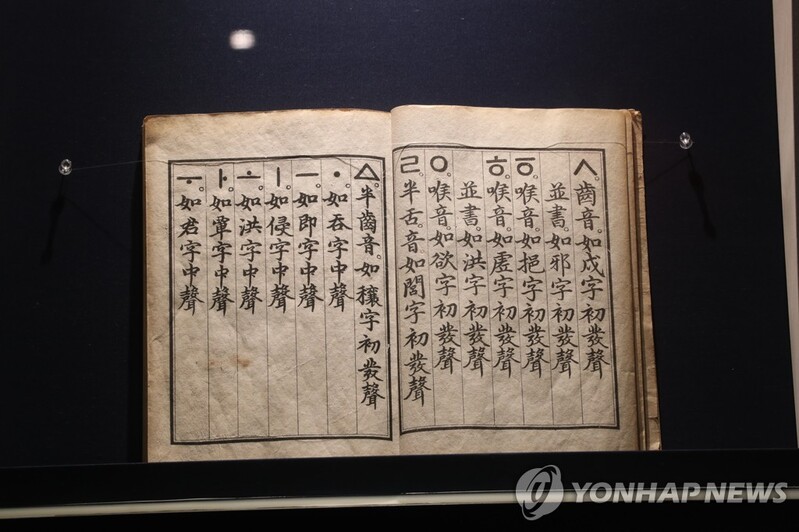 ㅅ。齒音。如戌字初發聲
並書。如邪字初發聲
ㆆ。喉音。如挹字初發聲
ㅎ。喉音。如虛字初發聲
並書。如洪字初發聲
ㅇ。喉音。如欲字初發聲
ㄹ。半舌。音如閭字初發聲
ㅿ。半齒音。如穰字初發聲
ㆍ。如呑字中聲
ㅡ。如即字中聲
ㅣ。如侵字中聲
ㅗ。如洪字中聲
ㅏ。如覃字中聲
ㅜ。如君字中聲
YONHAP NEWS